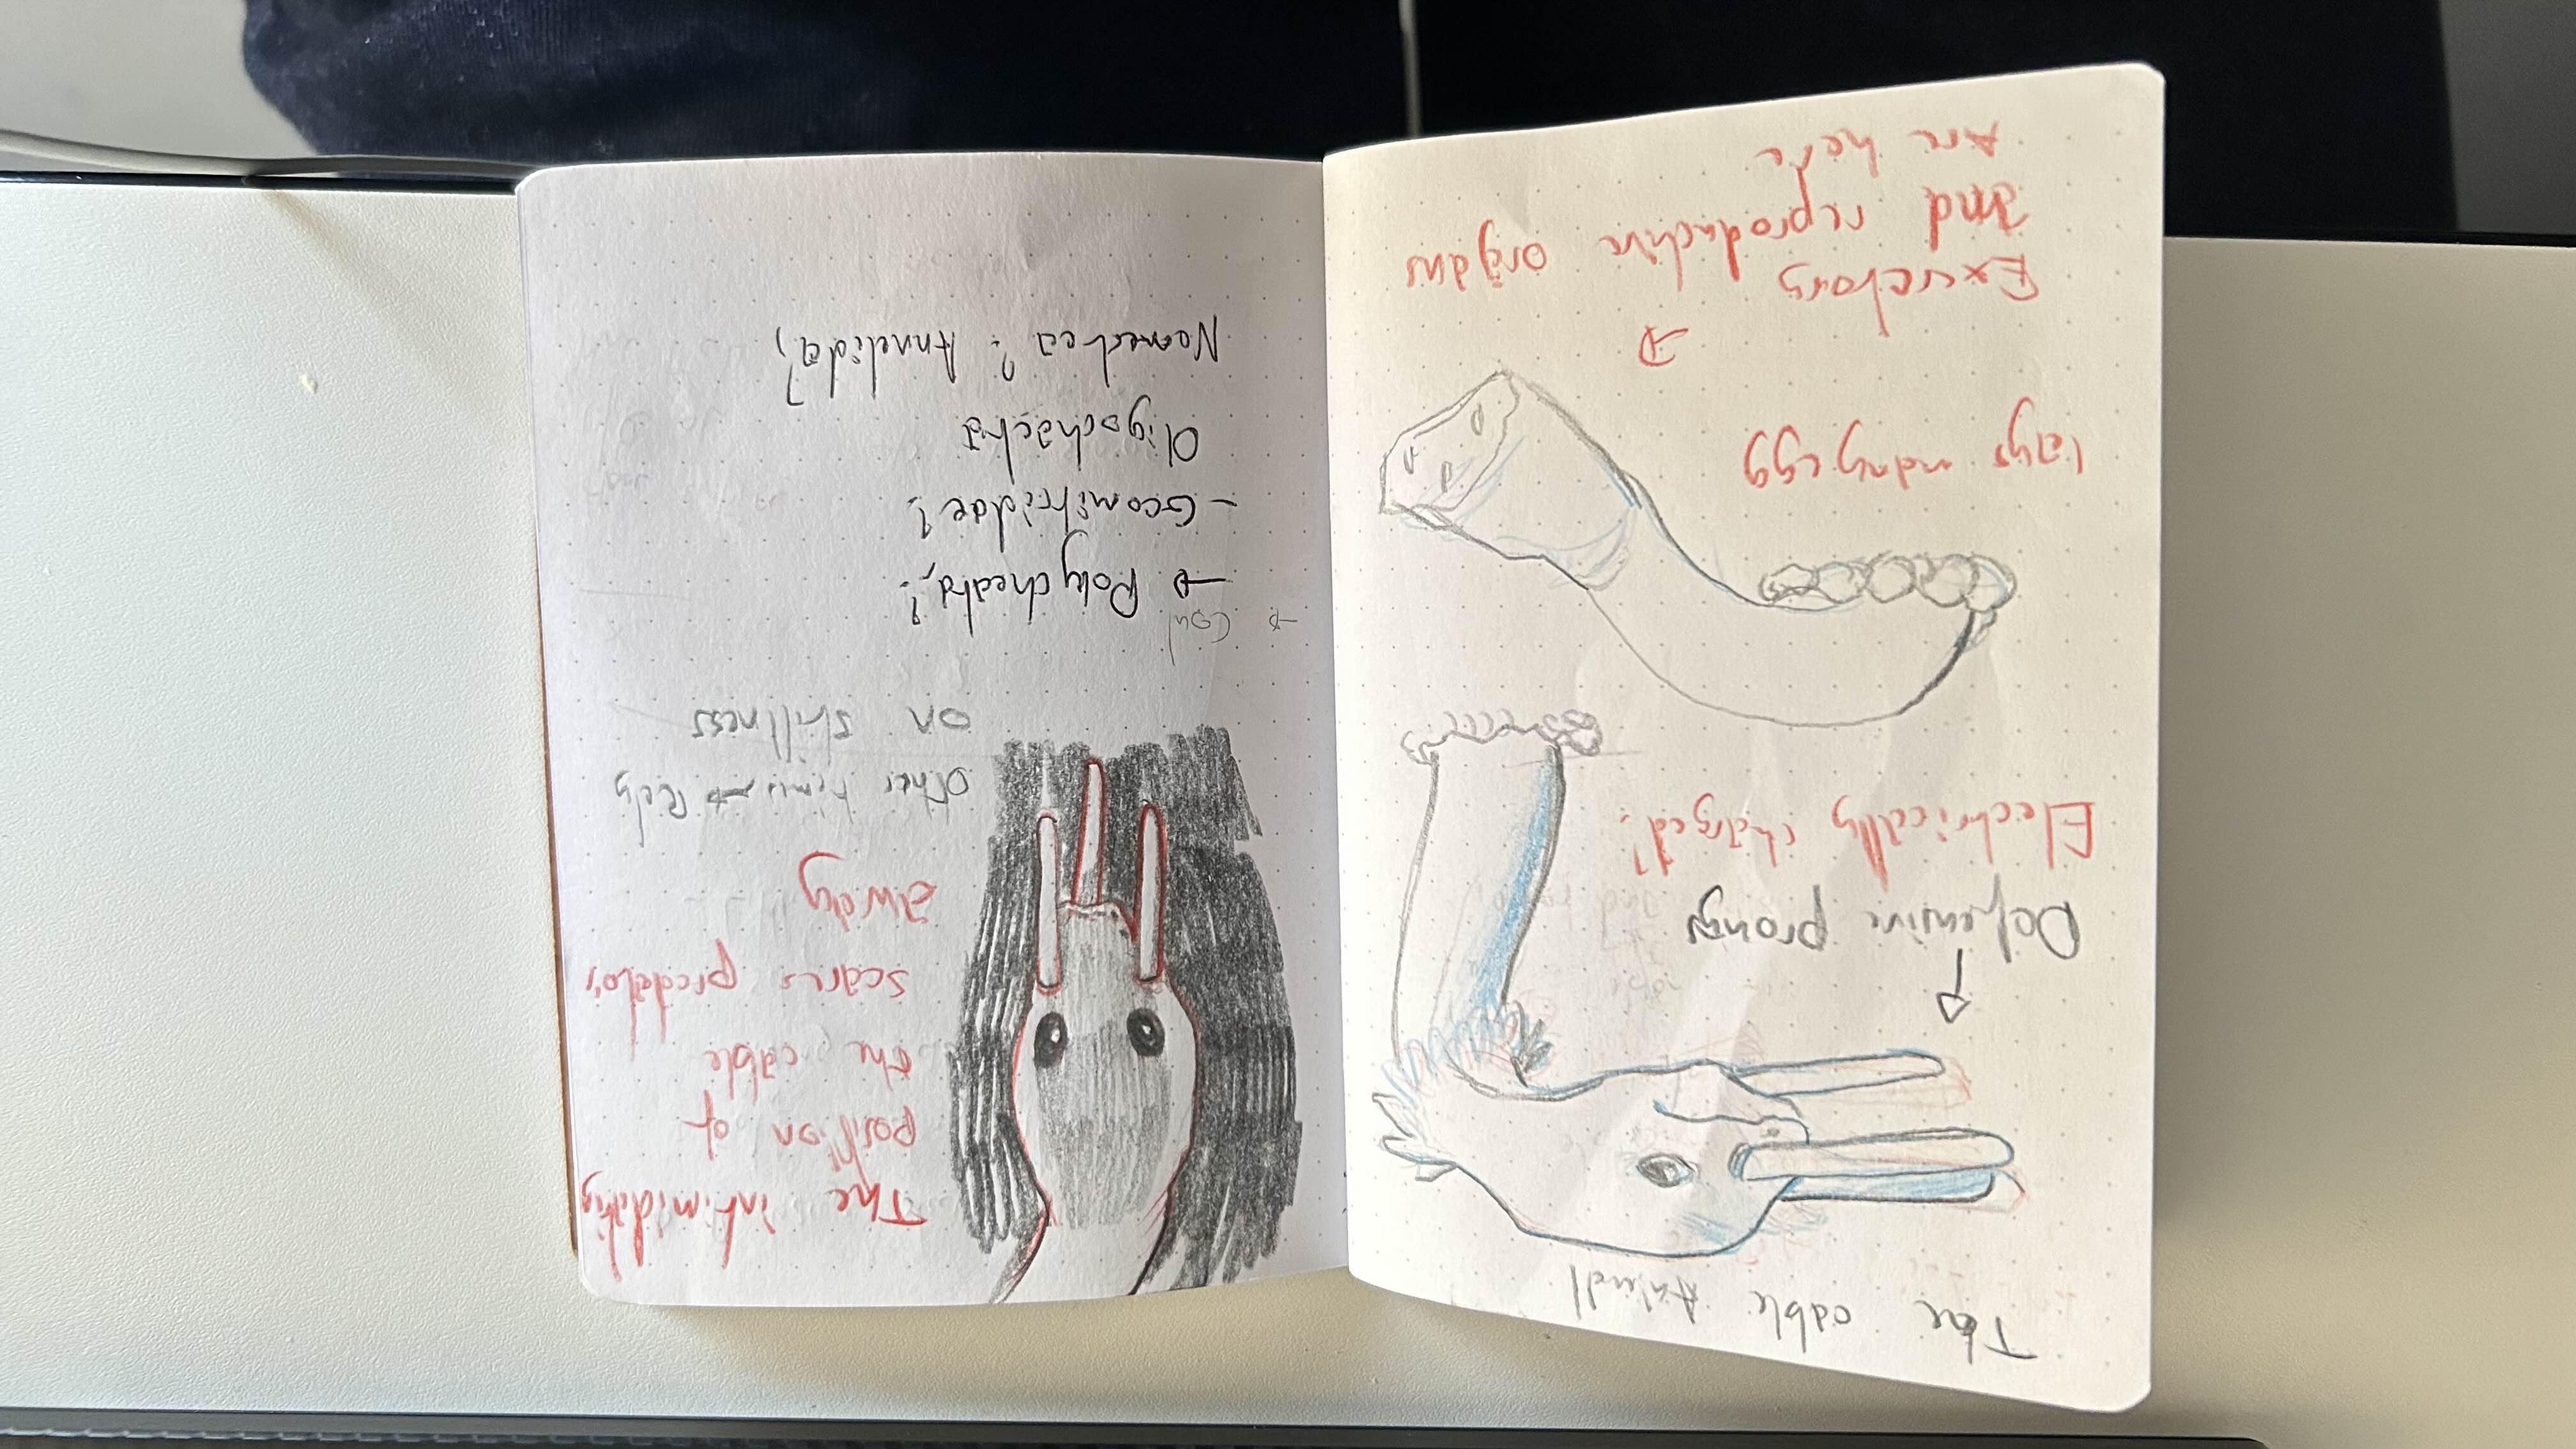 The cable Animal
Defensive prongs
Electrically charged?
lays many egg
Excretory
and reproductive organs
Are here
The intimidating
position of
the cable
scares predators
away
other times → Rely
on stillness
→ Polycheata?
- Geomitridae?
Oligochaeta
Annelida?